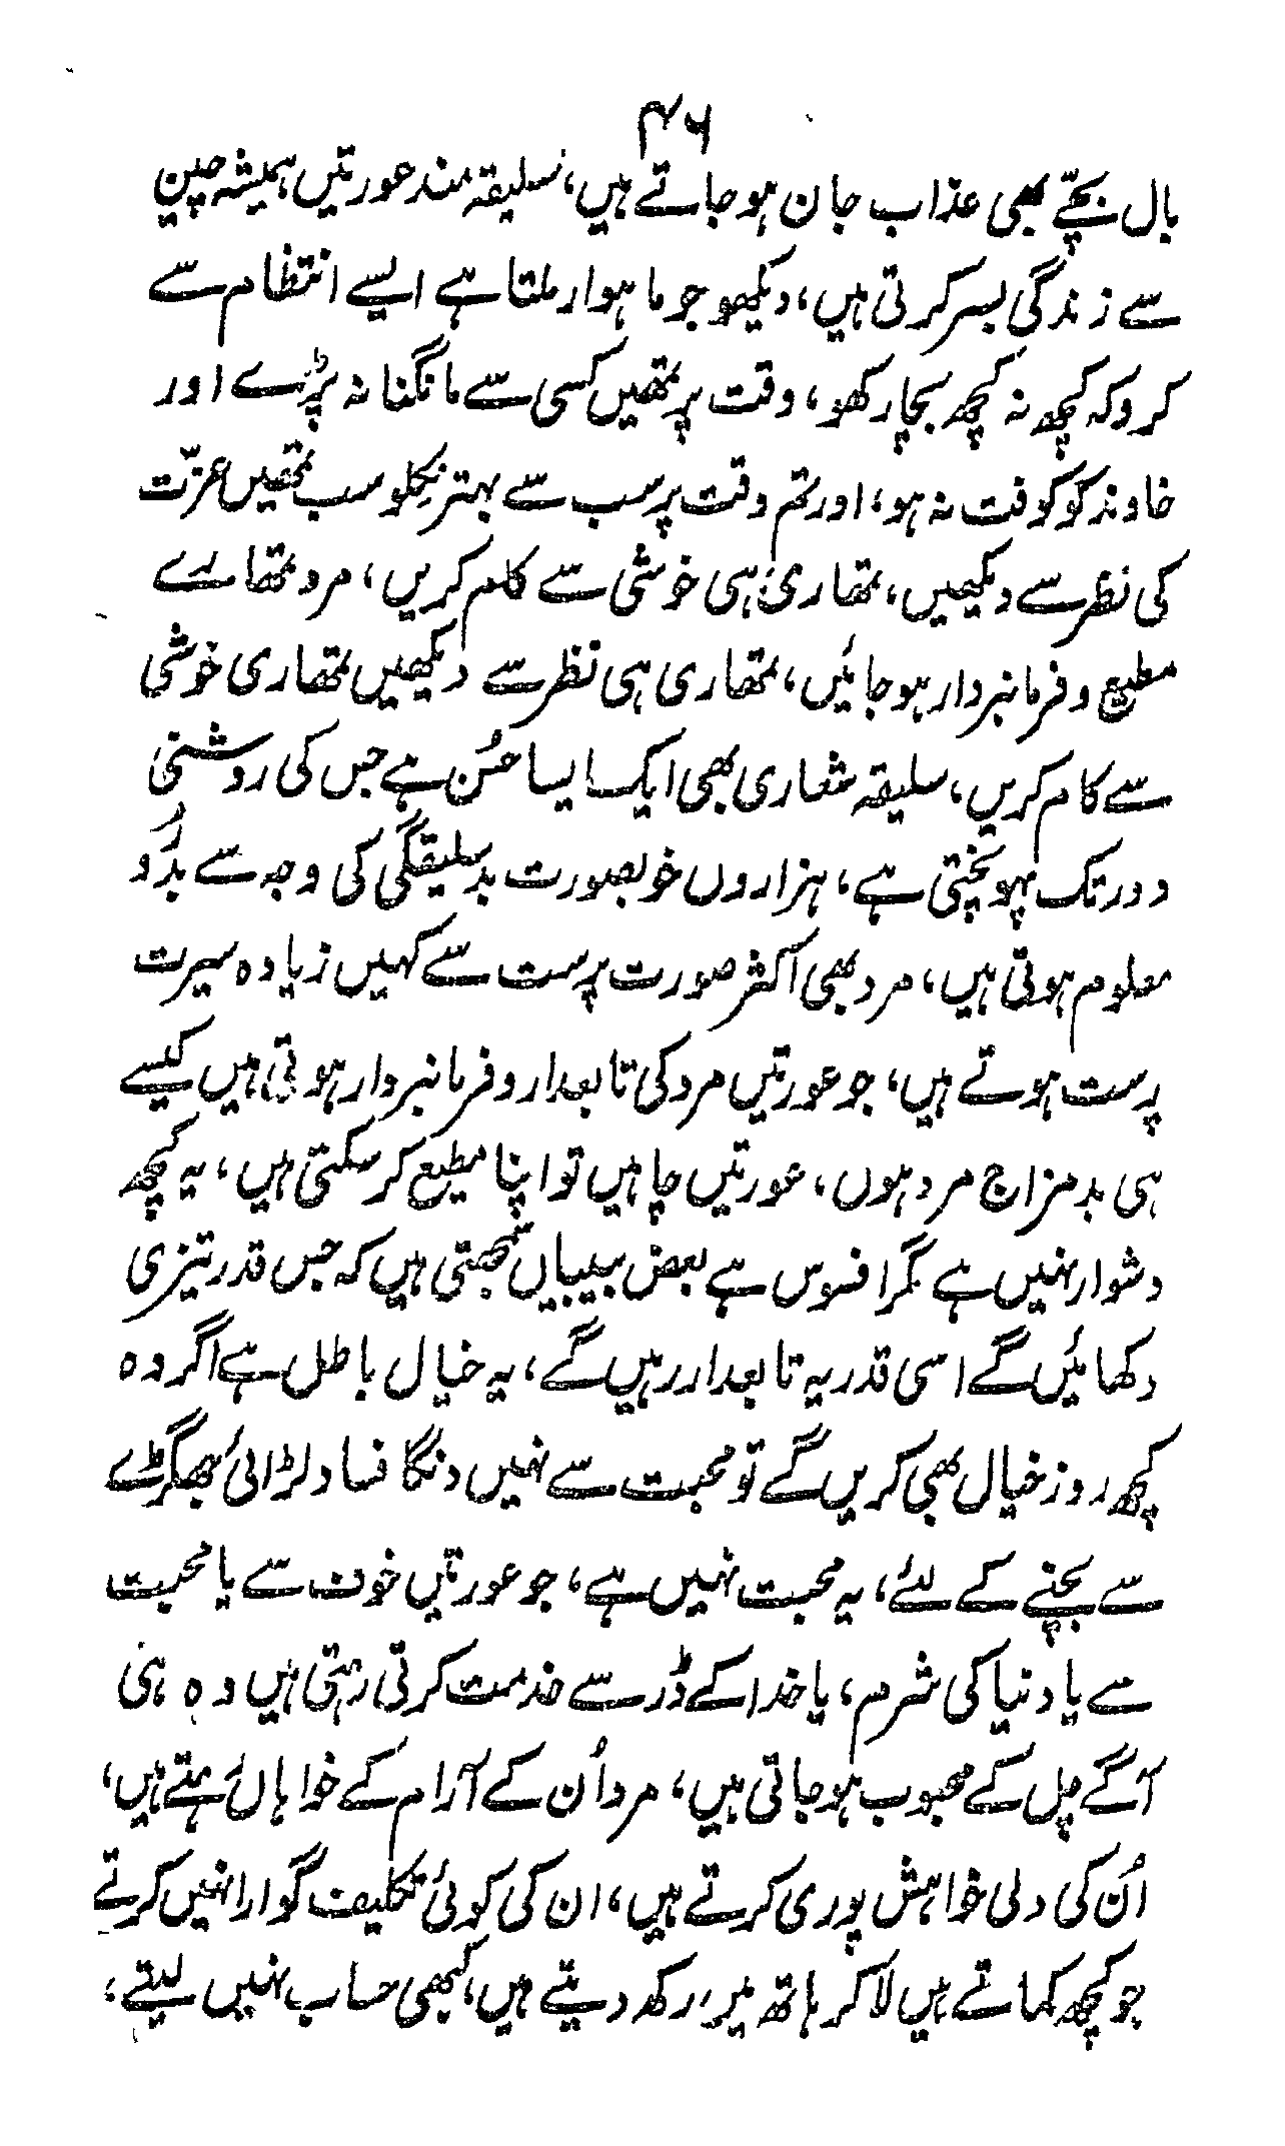 ۴۶
بال بچّے بھی عذاب جان ہوجاتے ہیں، سلیقہ مند عورتیں ہمیشہ چین
سے زندگی بسر کرتی ہیں، دیکھو جو ماہوار ملتا ہے ایسے انتظام سے
کرو کہ کچھ نہ کچھ بچا رکھو، وقت پر تمھیں کسی سے مانگنا نہ پڑے اور
خاوند کو کوفت نہ ہو، اور تم وقت پر سب سے بہتر نکلو سب تمھیں عزّت
کی نظر سے دیکھیں، تمھاری ہی خوشی سے کام کریں، مرد تمھارے
مطیع و فرمانبردار ہوجائیں، تمھاری ہی نظر سے دیکھیں تمھاری خوشی
سے کام کریں، سلیقہ شعاری بھی ایک ایسا حُسن ہے جس کی روشنی
دور تک پہونچتی ہے، ہزاروں خوبصورت بدسلیقگی کی وجہ سے بدرُو
معلوم ہوتی ہیں، مرد بھی اکثر صورت پرست سے کہیں زیادہ سیرت
پرست ہوتے ہیں، جو عورتیں مرد کی تابعدار و فرمانبردار ہوتی ہیں کیسے
ہی بدمزاج مرد ہوں، عورتیں چاہیں تو اپنا مطیع کرسکتی ہیں، یہ کچھ
دشوار نہیں ہے مگر افسوس ہے بعض بیبیاں سمجھتی ہیں کہ جس قدر تیزی
دکھائیں گے اسی قدر یہ تابعدار رہیں گے، یہ خیال باطل ہے اگر وہ
کچھ روز خیال بھی کریں گے تو محبت سے نہیں دنگا فساد لڑائی جھگڑے
سے بچنے کے لئے، یہ محبت نہیں ہے، جو عورتیں خوف سے یا محبت
سے یا دنیا کی شرم، یا خدا کے ڈر سے خدمت کرتی رہتی ہیں وہ ہی
آگے چل کے محبوب ہوجاتی ہیں، مرد اُن کے آرام کے خواہاں رہتے ہیں،
اُن کی دلی خواہش پوری کرتے ہیں، ان کی کوئی تکلیف گوارا نہیں کرتے
جو کچھ کماتے ہیں لا کر ہاتھ میں رکھ دیتے ہیں، کبھی حساب نہیں لیتے،